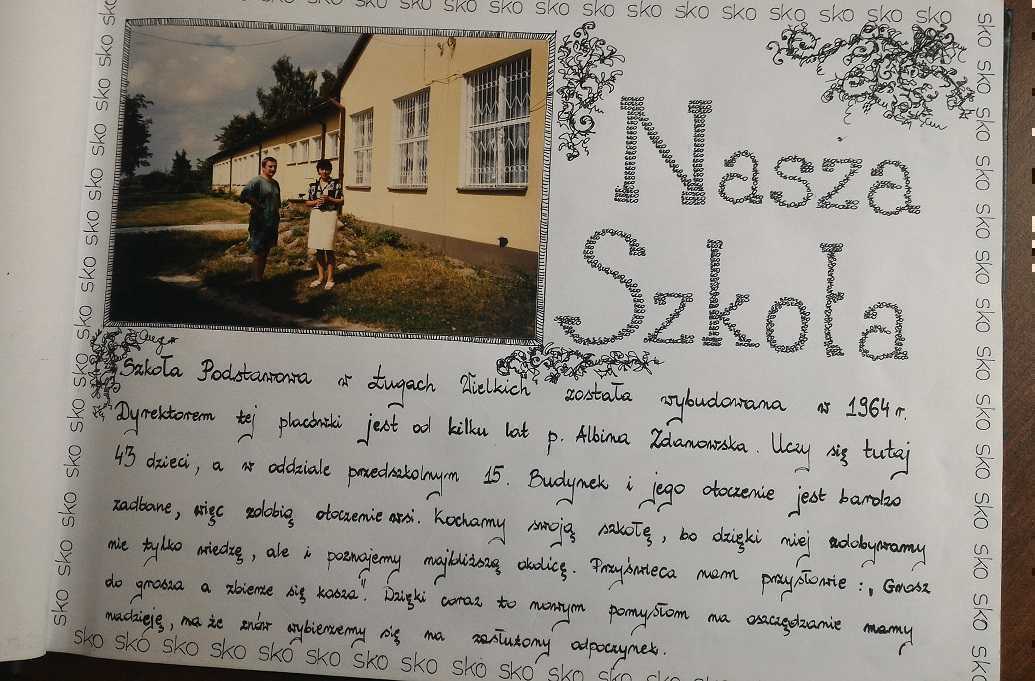 sko sko sko sko sko sko sko sko sko sko sko sko sko sko sko sko sko sko
Nasza
Szkoła
Szkoła Podstawowa w Ługach Wielkich została wybudowana w 1964 r.
Dyrektorem tej placówki jest od kilku lat p. Albina Zdanowska. Uczy się tutaj
43 dzieci, a w oddziale przedszkolnym 15. Budynek i jego otoczenie jest bardzo
zadbane, więc zdobią otoczenie wsi. Kochamy swoją szkołę, bo dzięki niej zdobywamy
nie tylko wiedzę, ale i poznajemy najbliższą okolicę. Przyświeca nam przysłowie: „Grosz
do grosza a zbierze się kosza". Dzięki coraz to nowym pomysłom na oszczędzanie mamy
nadzieję, na że znów wybierzemy się na zasłużony odpoczynek.
sko sko sko sko sko sko sko sko sko sko sko sko sko sko sko sko sko sko